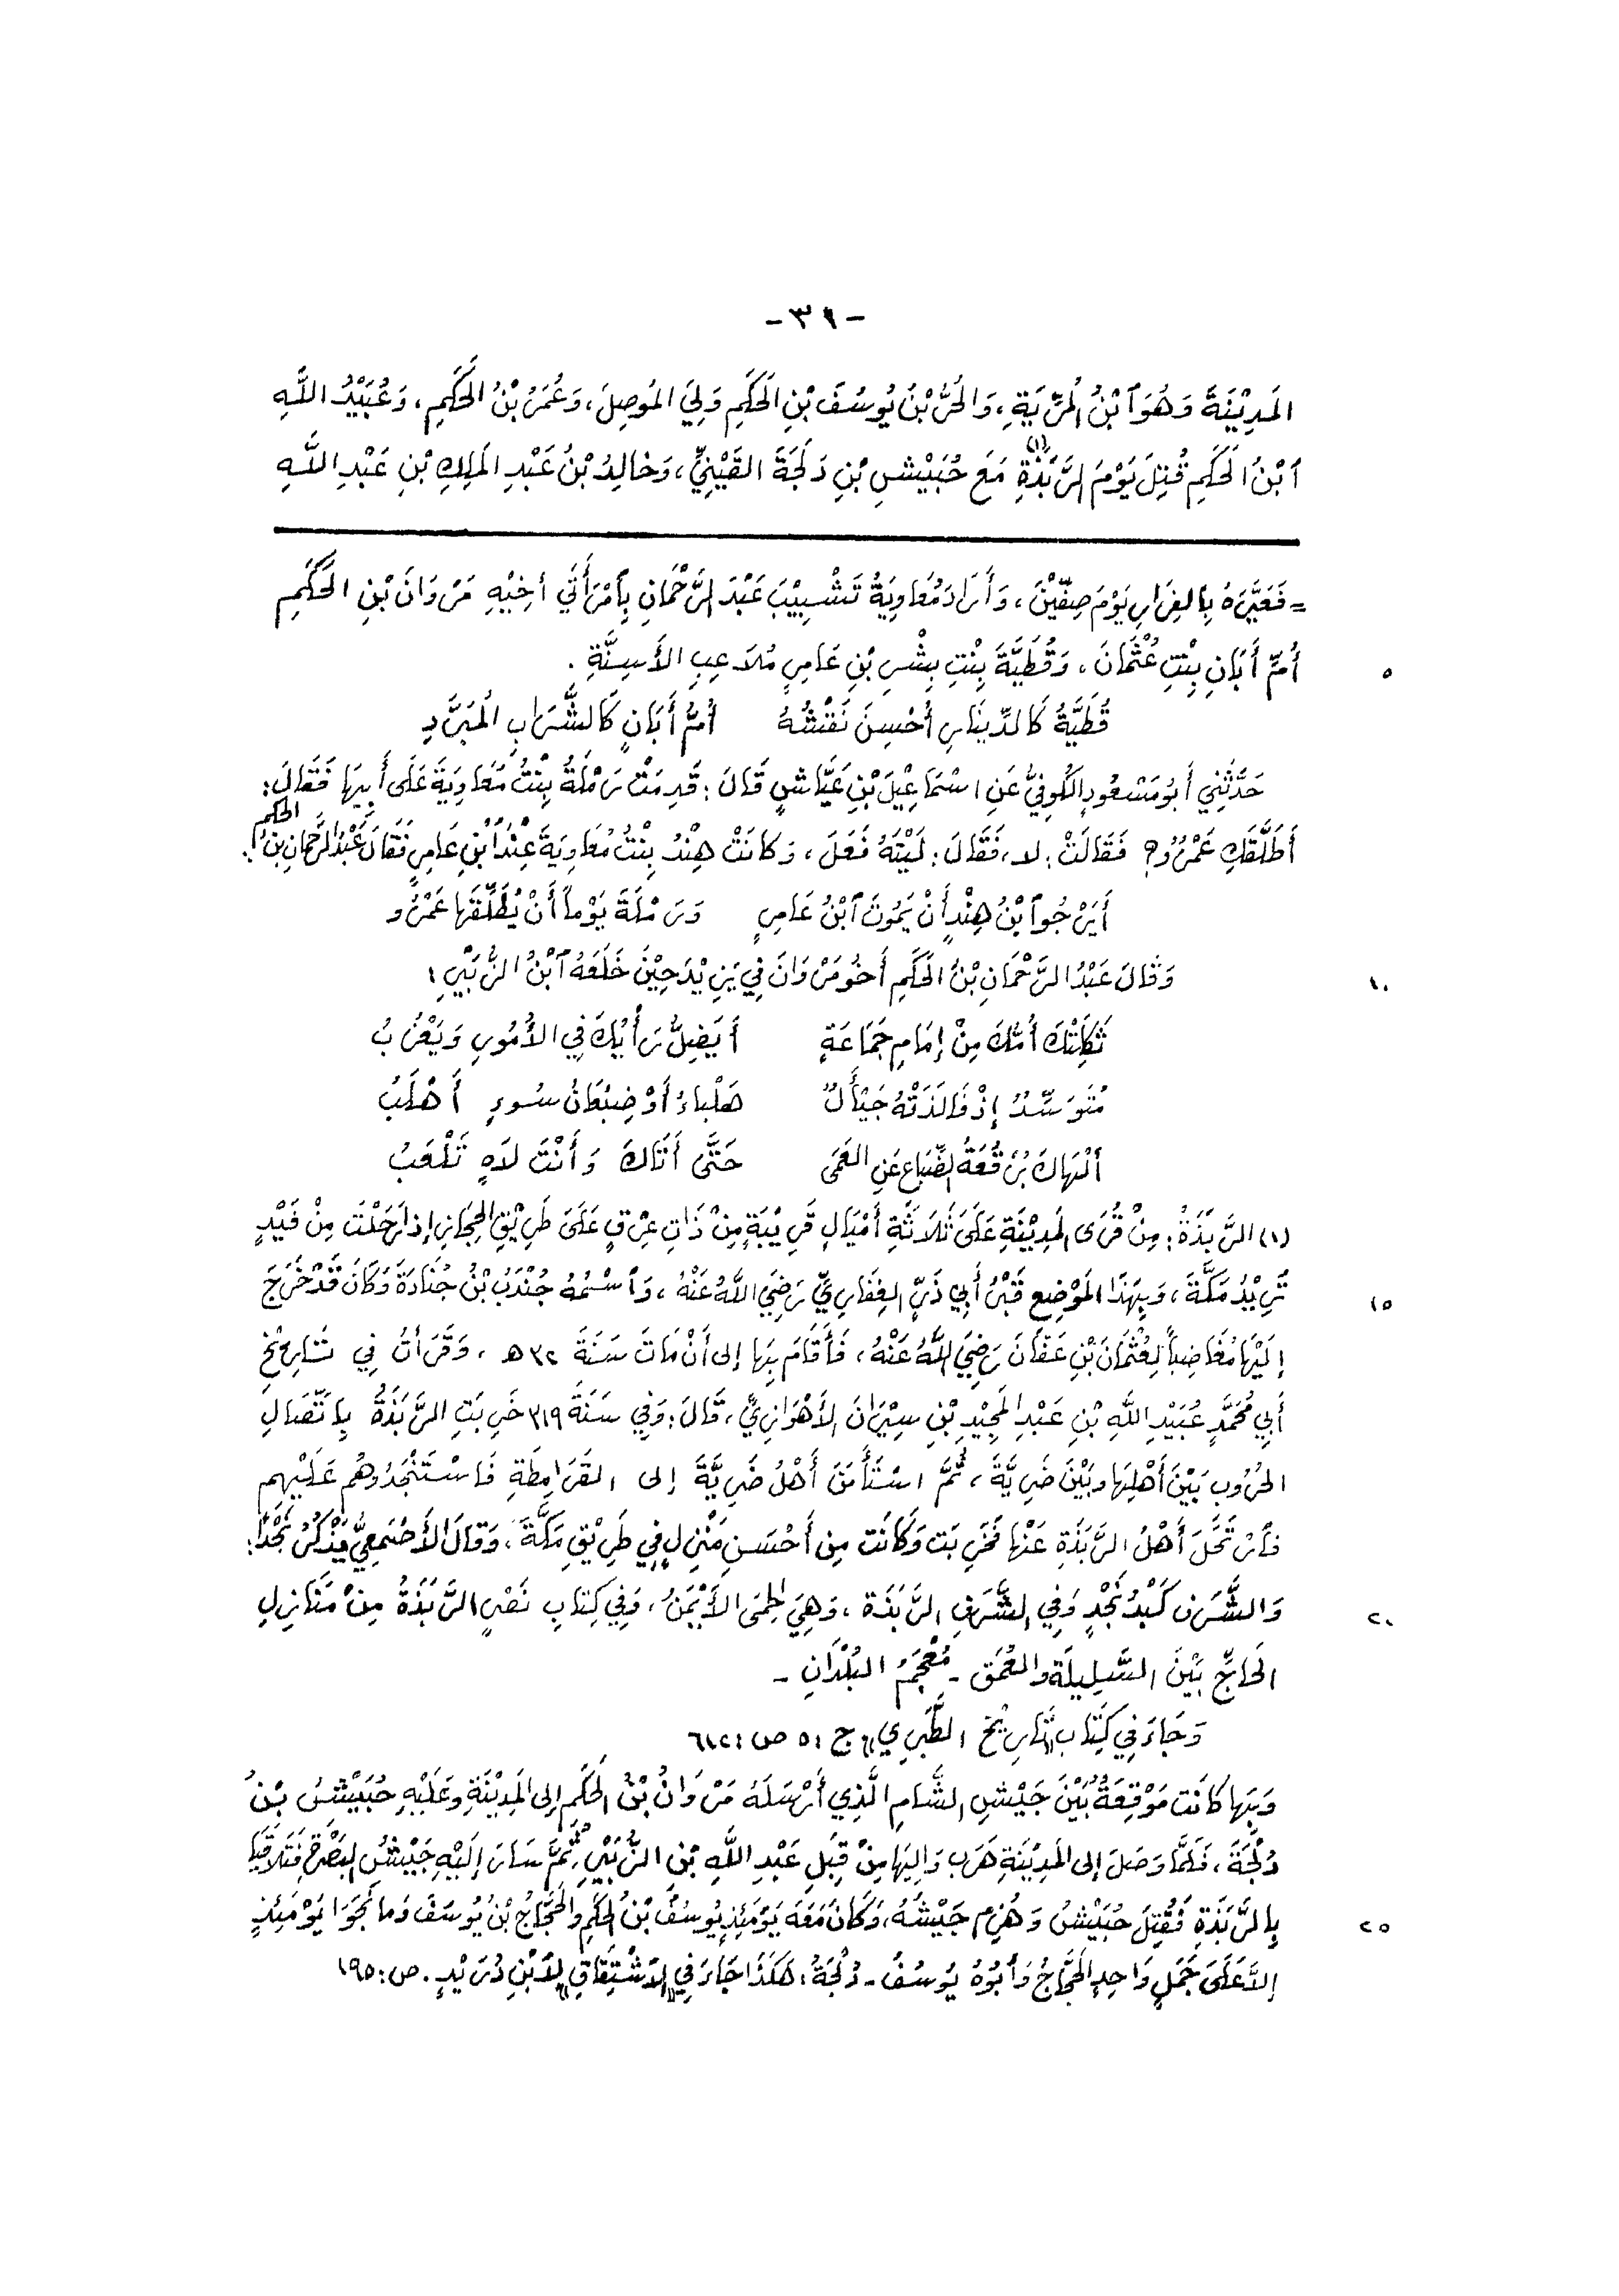 -٣١-
المَدِيْنَةَ وَهُوَ ٱبْنُ المُرِّيَةِ، وَالحُرُّ بْنُ يُوسُفَ بْنِ الحَكَمِ وَلِيَ المُوصِلَ، وَعُمَرُ بْنُ الحَكَمِ، وَعُبَيْدُ اللَّهِ
ٱبْنُ الحَكَمِ قُتِلَ يَوْمَ الرَّبَذَةِ (١) مَعَ حُبَيْشِ بْنِ دَلَجَةَ القَيْنِيِّ، وَخالِدُ بْنُ عَبْدِ المَلِكِ بْنِ عَبْدِ اللَّهِ
= فَعَيَّرَهُ بِالفِرَارِ يَوْمَ صِفِّيْنَ، وَأَرَادَ مُعَاوِيَةُ تَشْبِيْبَ عَبْدِ الرَّحْمَانِ بِٱمْرَأَتَي أخِيْهِ مَرْوَانَ بْنِ الحَكَمِ
٥ أُمِّ أَبَانِ بِنْتِ عُثْمَانَ، وَقُطَيَّةَ بِنْتِ بِشْرِ بْنِ عَامِرٍ مُلَاعِبِ الأَسِنَّةِ.
قُطَيَّةُ كَالدِّينَارِ أُحْسِنَ نَقْشُهُ أُمُّ أَبَانٍ كَالشَّرَابِ المُبَرَّدِ
حَدَّثَنِي أَبُو مَسْعُودٍ الكُوفِيُّ عَنِ اسْمَاعِيْلَ بْنِ عَيَّاشٍ قَالَ: قَدِمَتْ رَمْلَةُ بِنْتُ مُعَاوِيَةَ عَلَى أَبِيْهَا فَقَالَ:
أَطَلَّقَكِ عَمْرُو؟ فَقَالَتْ: لا، فَقَالَ: لَيْتَهُ فَعَلَ، وَكانَتْ هِنْدُ بِنْتُ مُعَاوِيَةَ عِنْدَ ٱبْنِ عَامِرٍ فَقَالَ عَبْدُ الرَّحْمَانِ بْنُ الحكم:
أَيَرْجُو ٱبْنُ هِنْدٍ أَنْ يَمُوتَ ٱبْنُ عَامِرٍ وَرَمْلَةَ يَوْماً أَنْ يُطَلِّقَهَا عَمْرُو
١٠ وَقَالَ عَبْدُ الرَّحْمَانِ بْنُ الحَكَمِ أَخُو مَرْوَانَ فِي يَزِيْدَ حِيْنَ خَلَعَهُ ٱبْنُ الزُّبَيْرِ:
ثَكِلَتْكَ أُمُّكَ مِنْ إِمَامِ جَمَاعَةٍ أَيَضِلُّ رَأْيُكَ فِي الأُمُورِ وَيَعْزُبُ
مُتَوَسِّدٌ إِذْ فَالَذَتْهُ جَيْأَلٌ هَلْباءُ أَوْ ضِبْعَانُ سُوءٍ أَهْلَبُ
أَلْهَاكَ بُرْقُعَةُ الضِّبَاعِ عَنِ العَمَى حَتَّى أَتَاكَ وَأَنْتَ لَاهٍ تَلْعَبُ
(١) الرَّبَذَةُ: مِنْ قُرَى المَدِيْنَةِ عَلَى ثَلَاثَةِ أَمْيَالٍ قَرِيْبَةٍ مِنْ ذَاتِ عِرْقٍ عَلَى طَرِيْقِ الحِجَازِ إِذا رَحَلْتَ مِنْ فَيْدٍ
١٥ تُرِيْدُ مَكَّةَ، وَبِهَذَا المَوْضِعِ قَبْرُ أَبِي ذَرٍّ الغِفَارِيِّ رَضِيَ اللَّهُ عَنْهُ، وَٱسْمُهُ جُنْدَبُ بْنُ جُنَادَةَ وَكَانَ قَدْ خَرَجَ
إِلَيْهَا مُغَاضِباً لِعُثْمَانَ بْنِ عَفَّانَ رَضِيَ اللَّهُ عَنْهُ، فَأَقَامَ بِهَا إلى أَنْ مَاتَ سَنَةَ ٣٢ هـ، وَقَرَأْتُ فِي تَارِيْخِ
أَبِي مُحَمَّدٍ عُبَيْدِ اللَّهِ بْنِ عَبْدِ المَجِيْدِ بْنِ سِيْرَانَ الأَهْوَازِيِّ، قَالَ: وَفِي سَنَةَ ٣١٩ خَرِبَتِ الرَّبَذَةُ بِاتِّصَالِ
الحُرُوبِ بَيْنَ أَهْلِهَا وبَيْنَ ضَرِيَّةَ، ثُمَّ اسْتَأْمَنَ أَهْلُ ضَرِيَّةَ إلى القَرَامِطَةِ فَاسْتَنْجَدُوهُم عَلَيْهِم
فَٱرْتَحَلَ أَهْلُ الرَّبَذَةِ عَنْهَا فَخَرِبَت وَكَانَت مِن أَحْسَنِ مَنْزِلٍ فِي طَرِيْقِ مَكَّةَ، وَقَالَ الأَصْمَعِيُّ يَذْكُرُ نَجْداً:
٢٠ وَالشَّرَفُ كَبْدُ نَجْدٍ وَفِي الشَّرَفِ الرَّبَذَةُ، وَهِيَ الحِمَى الأَيْمَنُ، وَفِي كِتَابِ نَصْرٍ الرَّبَذَةُ مِنْ مَنَازِلِ
الحَاجِّ بَيْنَ السَّلِيلَةِ والعُمَق - مُعْجَمُ البُلْدَانِ -
وَجَاءَ فِي كِتَابِ «تَارِيْخِ الطَّبَرِي» ج: ٥ ص: ٦١٢
وَبِهَا كَانَت مَوْقِعَةٌ بَيْنَ جَيْشِ الشَّامِ الَّذِي أَرْسَلَهُ مَرْوَانُ بْنُ الحَكَمِ إلى المَدِيْنَةِ وعَلَيْهِ حُبَيْشُ بْنُ
دُلْجَةَ، فَلَمَّا وَصَلَ إلى المَدِيْنَةِ هَرَبَ وَالِيْهَا مِنْ قِبَلِ عَبْدِ اللَّهِ بْنِ الزُّبَيْرِ، ثُمَّ سَارَ إِلَيْهِ جَيْشُ البَصْرَةِ فَتَلَاقَيَا
٢٥ بِالرَّبَذَةِ فَقُتِلَ حُبَيْشُ وَهُزِمَ جَيْشُهُ، وَكَانَ مَعَهُ يَوْمَئِذٍ يُوسُفُ بْنُ الحَكَمِ وَالحَجَّاجُ بْنُ يُوسَفَ وَمَا نَجَوَا يَوْمَئِذٍ
إِلَّا عَلَى جَمَلٍ وَاحِدٍ الحَجَّاجُ وَأَبُوهُ يُوسُفُ - دُلْجَةُ: هَكَذَا جَاءَ فِي «الاشْتِقَاقِ» لابْنِ دُرَيْدٍ. ص: ١٩٥